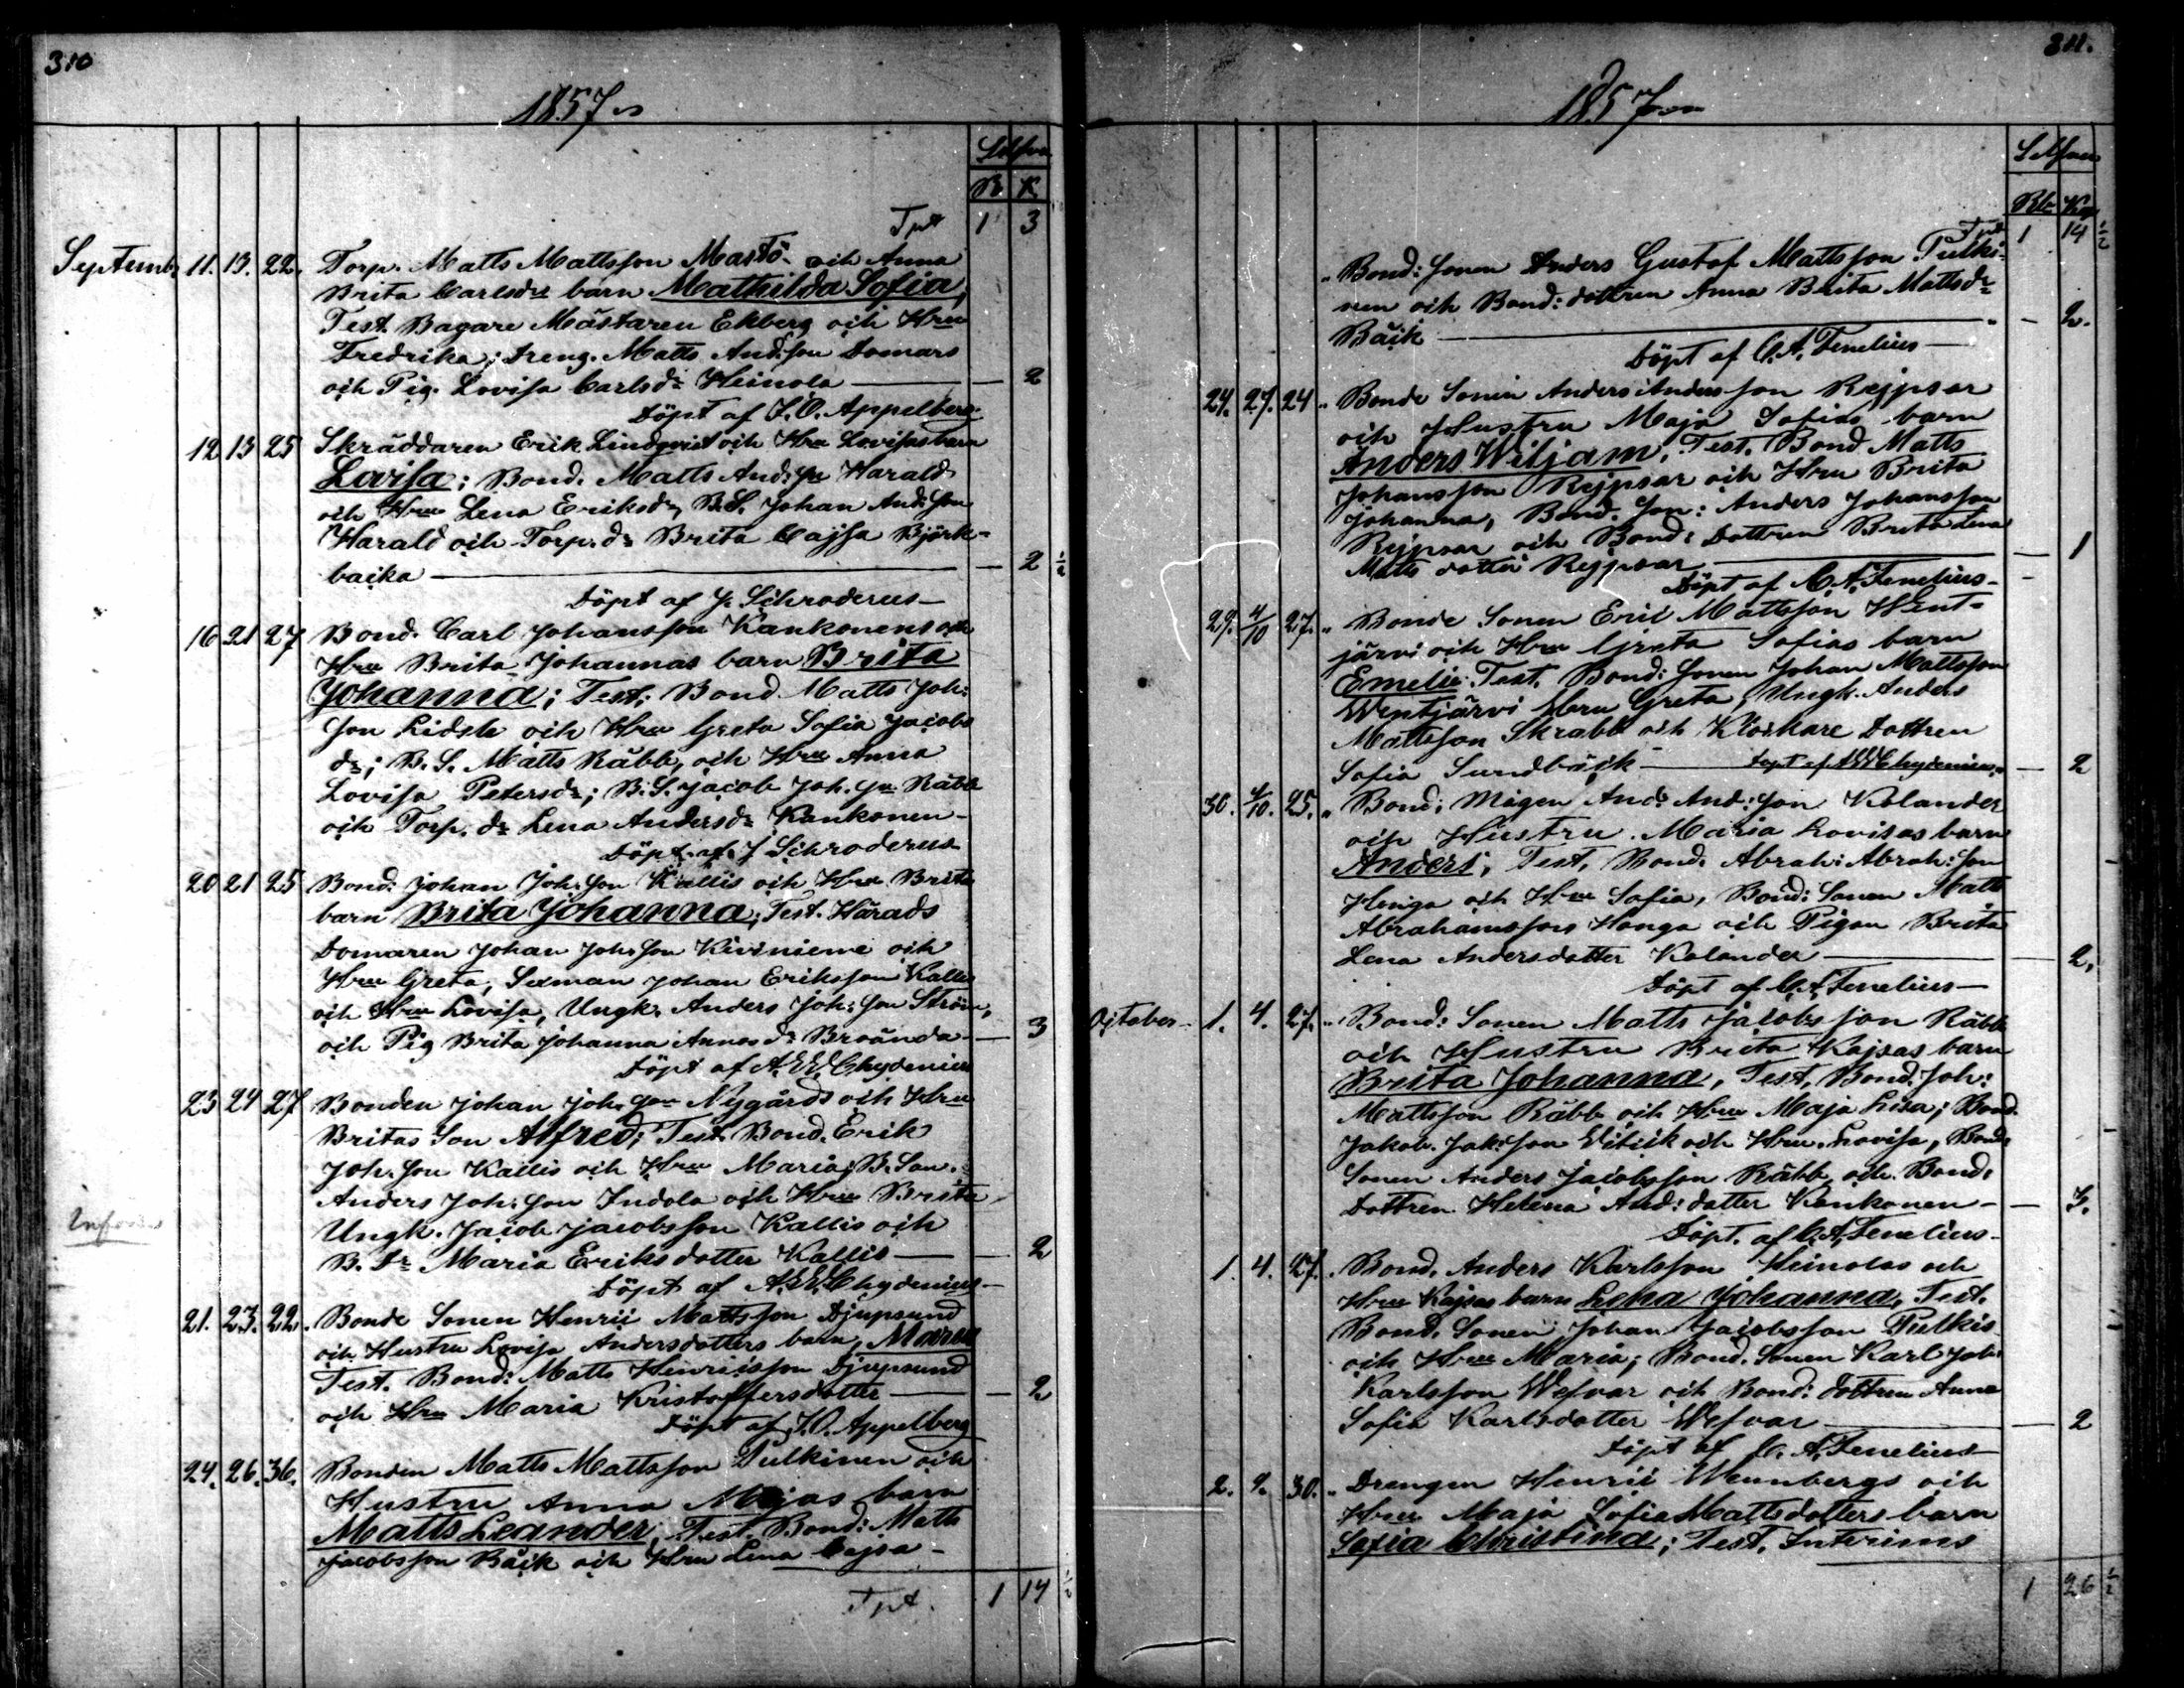 310
1857
R K
Tpt 1 3
Septemb. 11. 13. 22. Torp. Matts Mattsson Mastö och Anna
Brita Carlsdrs barn Mathilda Sofia,
Test. Bagare Mästaren Ekberg och Hru
Fredrika; Dreng. Matts And:son Domars
och Pig. Lovisa Carlsdr Heinola — — 2
Döpt af J. O. Appelberg
12 13 25 Skräddaren Erik Lindqvist och Hru Lovisas barn
Lovisa; Bond. Matts And:son Harald
och Hru Lena Eriksdr, B.S. Johan And:son
Harald och Torp. dr Brita Cajsa Björk-
backa — — 2 ½
Döpt af J. Schroderus —
16 21 27 Bond. Carl Johansson Kankonens och
Hru Brita Johannas barn Brita
Johanna; Test. Bond. Matts Joh:
son Lidsle och Hru Greta Sofia Jacobs
dr; B.S. Matts Räbb, och Hru Anna
Lovisa Petersdr; B.S. Jacob Joh. son Räbb
och Torp. dr Lena Andersdr Kankonen —
Döpt af J Schroderus
20 21 25 Bond: Johan Joh:son Kallis och Hru Brita
barn Brita Johanna; Test. Härads
Domaren Johan Joh:son Kiviniemi och
Hru Greta, Sexman Johan Eriksson Kallis
och Hru Lovisa, Ungk. Anders Joh:son Ström,
och Pig Brita Johanna Annas dr Broända — — 3
Döpt af A. W. Chydenius
23 24 27 Bonden Johan Joh. son Nygårds och Hru
Britas Son Alfred; Test. Bond. Erik
Joh. son Kallis och Hru Maria; B. Son.
Anders Joh:son Indola och Hru Brita
Ungk. Jacob Jacobsson Kallis och
B. Dr Maria Eriksdotter Kallis — — 2
Döpt af A. W. Chydenius —
21. 23. 22. Bonde Sonen Henric Mattsson Djupsund
och Hustru Lovisa Andersdotters barn, Maria
Test. Bond: Matts Henricsson Djupsund
och Hru Maria Kristoffersdotter — — 2
Döpt af J. O. Appelberg
24. 26. 36. Bonden Matts Mattsson Pulkinen och
Hustru Anna Majas barn
Matts Leander, Test. Bond: Matts
Jacobsson Bäck och Hru Lena Cajsa —
Tpt. 1 14 ½
311.
1857
Rbr Kop
Tpt 1 14 ½
" Bond: Sonen Anders Gustaf Mattsson Pulki-
nen och Bond: dottren Anna Brita Mattsdr
Bäck — — 2.
Döpt af C. A. Fenelius —
24. 27. 24 " Bonde Sonen Anders Andersson Rejpsar
och Hustru Maja Sofias barn
Anders Wiljam, Test. Bond Matts
Johansson Rejpsar och Hru Brita
Johanna, Bond. Son: Anders Johansson
Rejpsar och Bond: Dottren Brita Lena
Matts dotter Rejpsar — — 1
Döpt af C. A. Fenelius —
29. 4/10 27. " Bonde Sonen Eric Mattsson Went-
järvi och Hru Greta Sofias barn
Emelie. Test. Bond: Sonen Johan Mattsson
Wentjärvi Hru Greta, Ungk. Anders
Mattsson Skrabb och Klockare Dottren
Sofia Sundbäck — Döpt af A W Chydenius — 2
30. 4/10. 25. " Bond: Mågen And: And:son Kolander
och Hustru Maria Lovisas barn
Anders; Test. Bond. Abrah: Abrah:son
Honga och Hru Sofia, Bond: Sonen Matts
Abrahamsson Honga och Pigan Brita
Lena Andersdotter Kolander — — 2.
Döpt af C. A. Fenelius —
October 1. 4. 27. " Bond: Sonen Matts Jacobsson Räbb
och Hustru Brita Kajsas barn
Brita Johanna, Test. Bond. Joh:
Mattsson Räbb och Hru Maja Lisa; Bond.
Jakob Jak:son Witick och Hru Lovisa, Bond:
Sonen Anders Jacobsson Räbb och Bond:
Dottren Helena And: dotter Kankonen — — 3.
Döpt. af C. A. Fenelius —
1. 4. 27. Bond. Anders Karlsson Heinolas och
Hru Kajsas barn Lena Johanna, Test.
Bond. Sonen Johan Jacobsson Pulkis
och Hru Maria; Bond. Sonen Karl Joh:
Karlsson Wefvar och Bond: dottren Anna
Sofia Karlsdotter Wefvar — — 2
Döpt af C. A. Fenelius
2. 9. 30. " Drengen Henric Wennbergs och
Hru Maja Sofia Mattsdotters barn
Sofia Christina; Test. Interims
1 26 ½